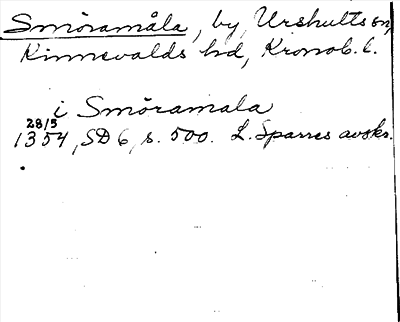 Smöramåla, by, Urshults sn,
Kinnevalds hd, Kronob. l.
i Smöramala
28/5
1354, SD 6, s. 500. L. Sparres avskr.